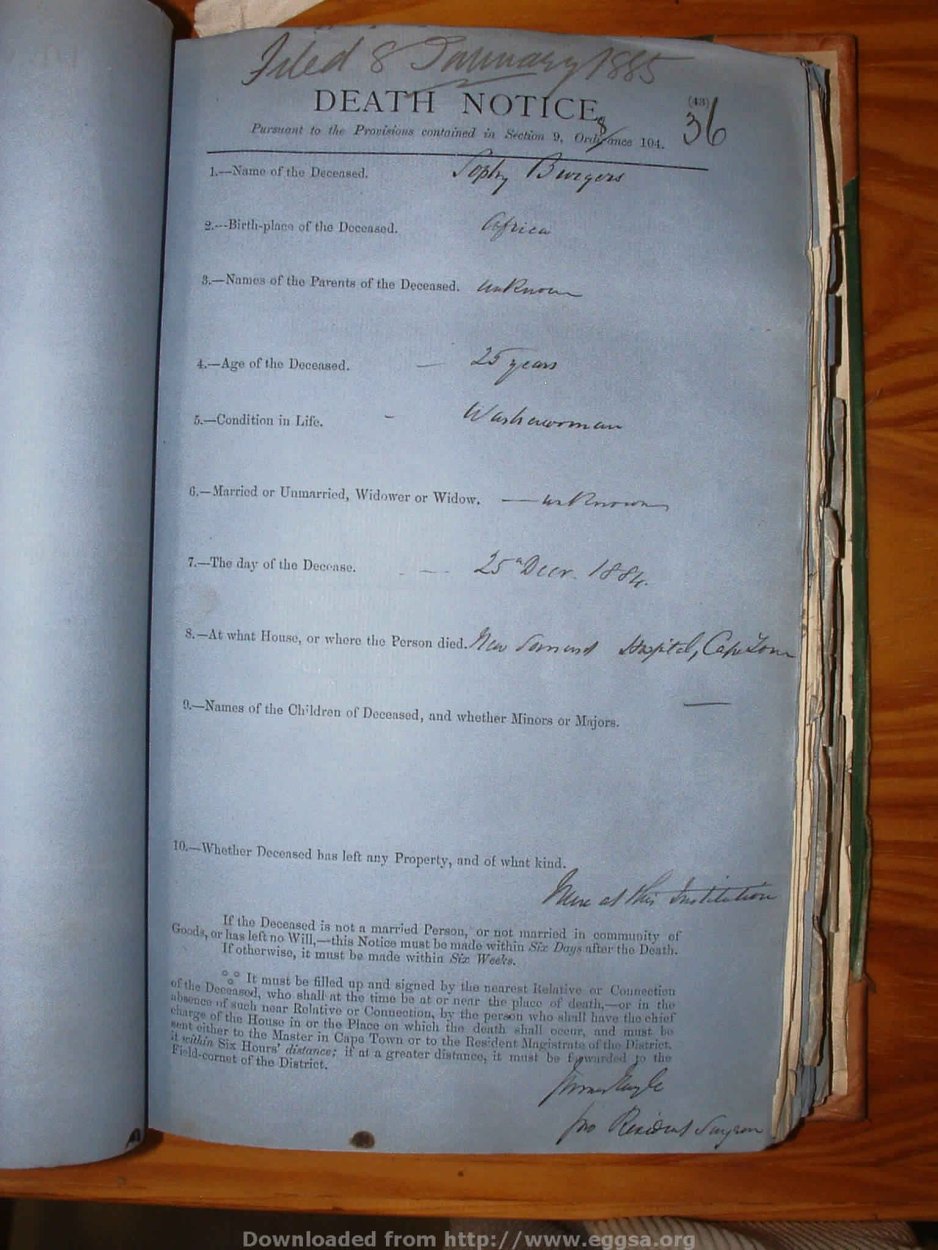 Filed 8 January 1885
DEATH NOTICE,
(43)
36
Pursuant to the Provisions contained in Section 9, Ordinance 104.
1.—Name of the Deceased. Sophy Burgers
2.—Birth-place of the Deceased. Africa
3.—Names of the Parents of the Deceased. unknown
4.—Age of the Deceased. — 25 years
5.—Condition in Life. - Washerwoman
6.—Married or Unmarried, Widower or Widow. — unknown
7.—The day of the Decease. - — 25th Decr. 1884.
8.—At what House, or where the Person died. New Somerset Hospital, Cape Town
9.—Names of the Children of Deceased, and whether Minors or Majors. —
10.—Whether Deceased has left any Property, and of what kind.
None at this Institution
If the Deceased is not a married Person, or not married in community of
Goods, or has left no Will,—this Notice must be made within Six Days after the Death.
If otherwise, it must be made within Six Weeks.
°°° It must be filled up and signed by the nearest Relative or Connection
of the Deceased, who shall at the time be at or near the place of death,—or in the
absence of such near Relative or Connection, by the person who shall have the chief
charge of the House in or the Place on which the death shall occur, and must be
sent either to the Master in Cape Town or to the Resident Magistrate of the District,
if within Six Hours' distance; if at a greater distance, it must be forwarded to the
Field-cornet of the District.
pro Resident Surgeon
Downloaded from http://www.eggsa.org